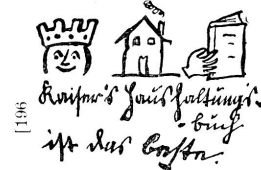 Kaiser's Haushaltungs-
-buch
ist das beste.
[196